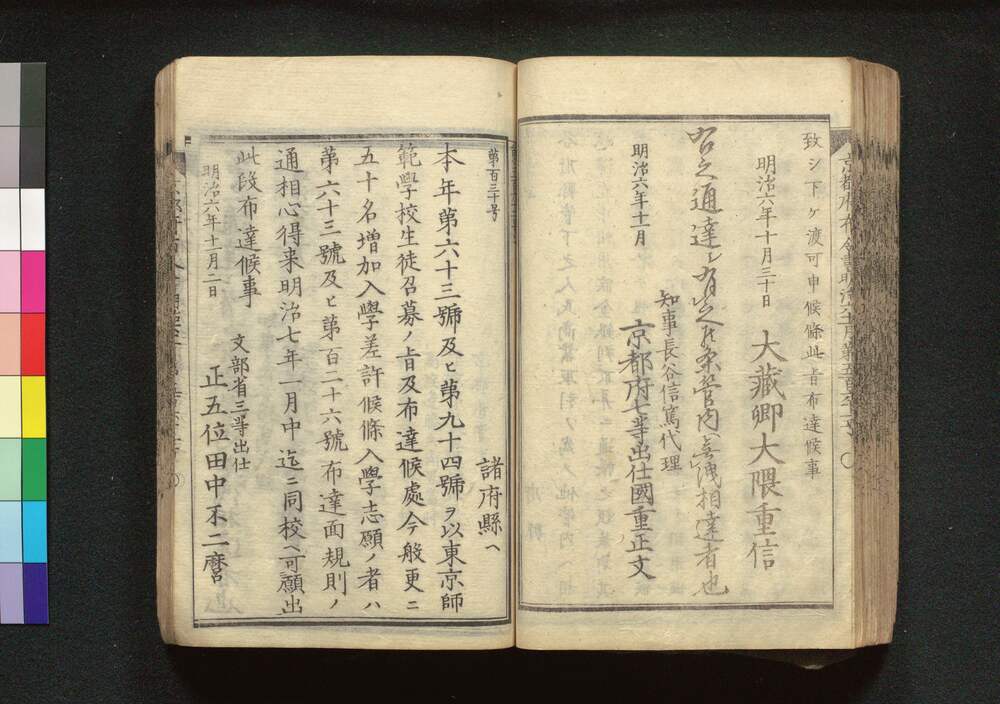 致シ下ケ渡可申候條此旨布達候事
明治六年十月三十日
大藏卿大隈重信
右之通達シ有之候条管内無洩相達者也
明治六年十一月
知事長谷信篤代理
京都府七等出仕國重正文
第百三十号
諸府縣ヘ
本年第六十三號及ヒ第九十四號ヲ以東京師
範學校生徒召募ノ旨及布達候處今般更ニ
五十名増加入學差許候條入學志願ノ者ハ
第六十三號及ヒ第百二十六號布達面規則ノ
通相心得来明治七年一月中迄ニ同校ヘ可願出
此段布達候事
文部省三等出仕
明治六年十一月二日
正五位田中不二麿